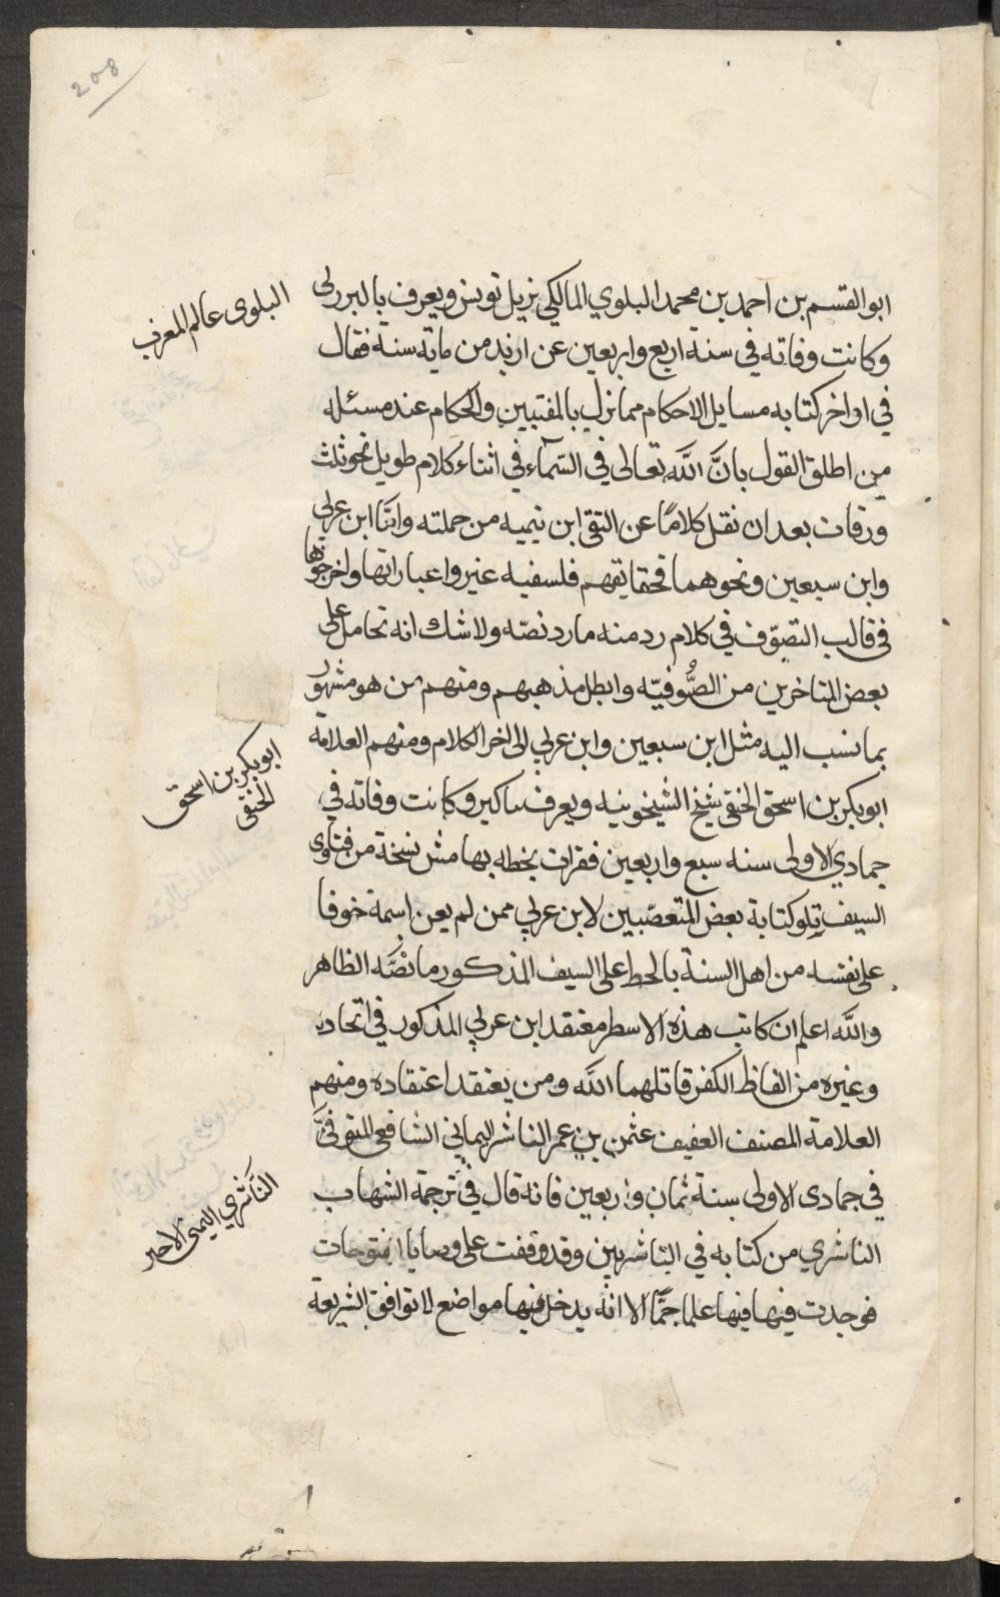 208
ابو القسم بن احمد بن محمد البلوي المالكي نزيل تونس ويعرف بالبرزلى
البلوى عالم المغرب
وكانت وفاته فى سنة اربع واربعين عن ازيد من ماية سنة فقال
في اواخر كتابه مسايل الاحكام مما نزل بالمفتيين والحكام عند مسئله
من اطلق القول بانَّ اللَّه تعالى في السَّمآء في اثناء كلام طويل نحو ثلث
ورقات بعد ان نقل كلامًا عن التقى ابن تيميه من جملته وامَّا ابن عربي
وابن سبعين ونحوهما فحقايقهم فلسفيه غيروا عباراتها واخرجوها
فى قالب التصوّف في كلام رد منه ما رد نصّه ولا شك انه تحامل على
بعض المتاخرين من الصُّوفيّه وابطل مذهبهم ومنهم من هو مشهور
بما نسب اليه مثل ابن سبعين وابن عربي الى اخر الكلام ومنهم العلامة
ابو بكر بن اسحق الحنفى
ابو بكر بن اسحق الحنفى شيخ الشيخونيه ويعرف بباكير وكانت وفاته في
جمادي الاولى سنه سبع واربعين فقرات بخطه بهامش نسخة من فتاوى
السيف تلو كتابة بعض المتعصّبين لابن عربي ممن لم يعن اسمه خوفا
على نفسه من اهل السنة بالحط على السيف المذكور ما نصَّه الظاهر
واللَّه اعلم ان كاتب هذه الاسطر معتقد ابن عربي المذكور في اتحاده
وغيره من الفاظ الكفر قاتلهما اللَّه ومن يعتقد اعتقاده ومنهم
العلامة المصنف العفيف عثمن بن عمر الناشر اليماني الشافعى المتوفىَّ
النَّاشري اليمنى
في جمادى الاولى سنة ثمان واربعين فانه قال في ترجمة الشهاب
الناشري من كتابه في الناشريين وقد وقفت على وصايا الفتوحات
فوجدت فيها فيها علما جمًّا الا انه يدخل فيها مواضع لا توافق الشريعة